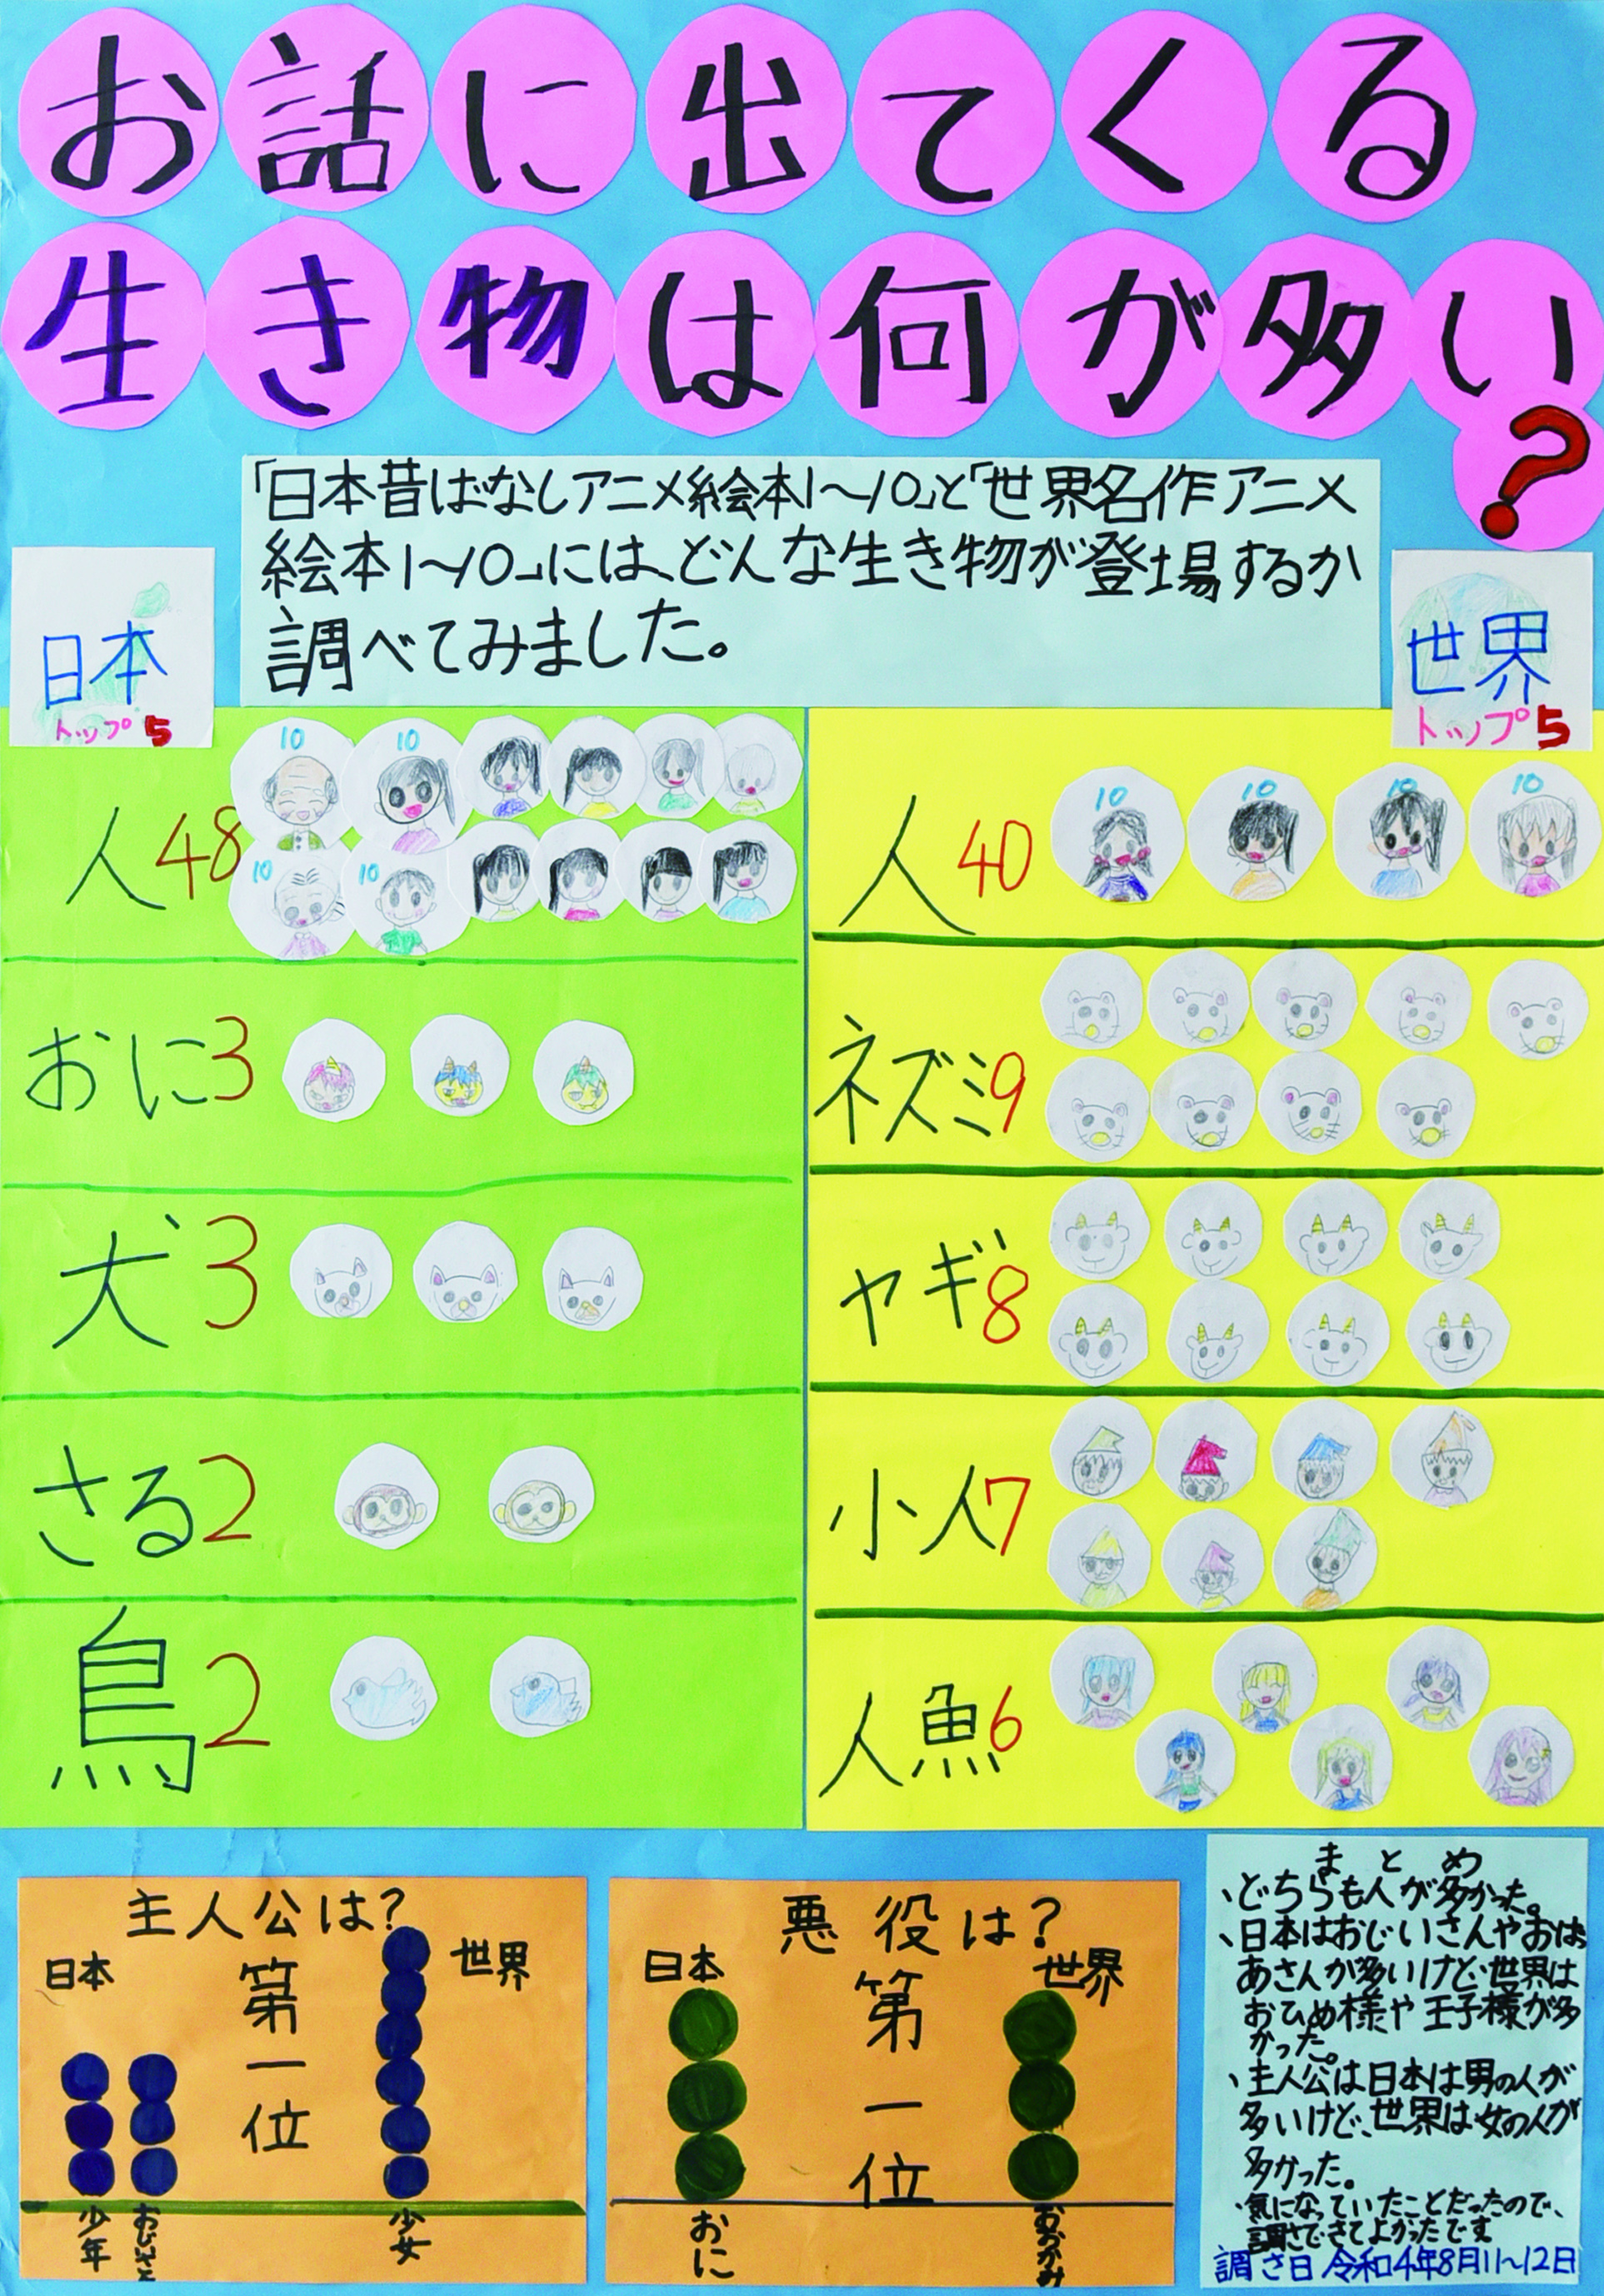 お話に出てくる
生き物は何が多い
?
「日本昔ばなしアニメ絵本1〜10」と「世界名作アニメ
絵本1〜10」には、どんな生き物が登場するか
調べてみました。
日本
トップ5
世界
トップ5
人48
10
10
10
10
おに3
犬3
さる2
鳥2
人40
10
10
10
10
ネズミ9
ヤギ8
小人7
人魚6
主人公は?
日本
第一位
世界
少年
おじいさん
少女
悪役は?
日本
第一位
世界
おに
おおかみ
まとめ
、どちらも人が多かった。
、日本はおじいさんやおば
あさんが多いけど、世界は
おひめ様や王子様が多
かった。
、主人公は日本は男の人が
多いけど、世界は女の人が
多かった。
、気になっていたことだったので、
調さできてよかったです
調さ日 令和4年8月11〜12日